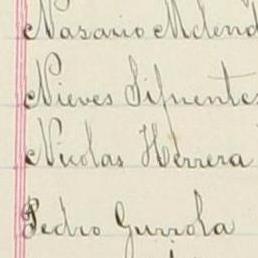 Nasario Melend
Nieves Sifuentes
Nicolas Herrera
Pedro Gurrola